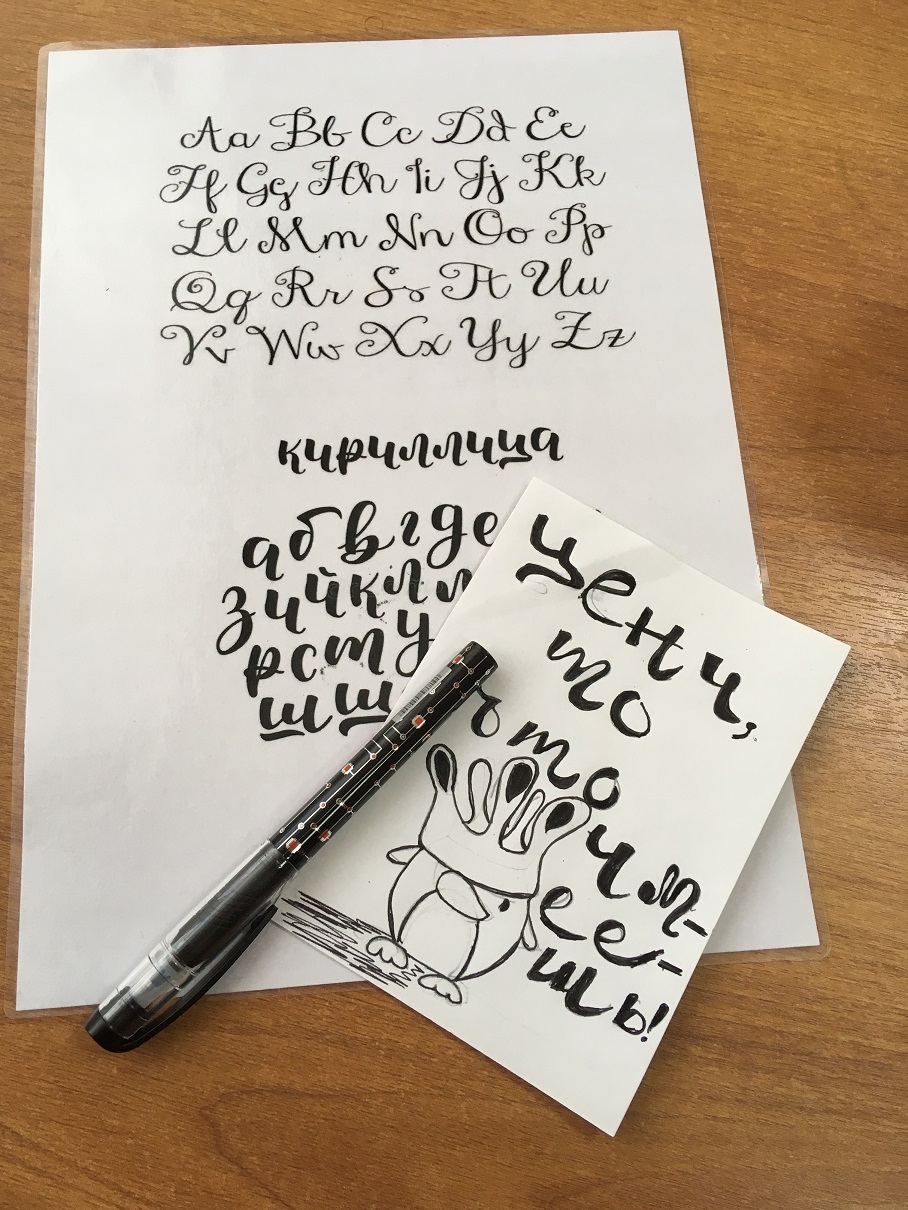 Aa Bb Cc Dd Ee
Ff Gg Hh Ii Jj Kk
Ll Mm Nn Oo Pp
Qq Rr Ss Tt Uu
Vv Ww Xx Yy Zz
кириллица
абвгде
зийкл
рсту
шщ
цени,
то
что
им-
ее-
шь!